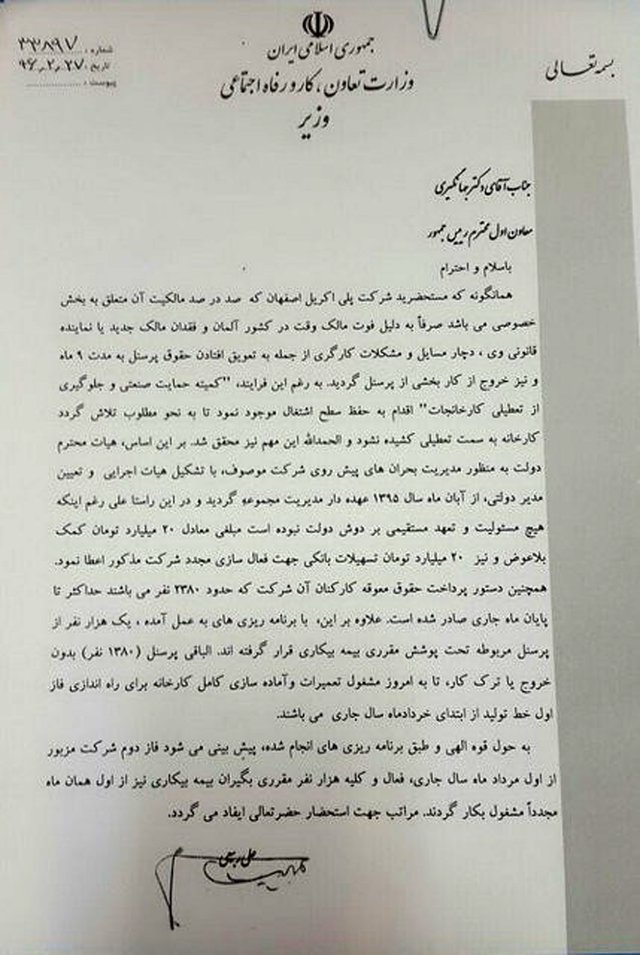 بسمه تعالی
جمهوری اسلامی ایران
وزارت تعاون، کار و رفاه اجتماعی
وزیر
شماره: ۳۳۸۹۷
تاریخ: ۹۶،۲،۲۷
پیوست:
جناب آقای دکتر جهانگیری
معاون اول محترم رییس جمهور
باسلام و احترام
همانگونه که مستحضرید شرکت پلی اکریل اصفهان که صد در صد مالکیت آن متعلق به بخش
خصوصی می باشد صرفاً به دلیل فوت مالک وقت در کشور آلمان و فقدان مالک جدید یا نماینده
قانونی وی ، دچار مسایل و مشکلات کارگری از جمله به تعویق افتادن حقوق پرسنل به مدت ۹ ماه
و نیز خروج از کار بخشی از پرسنل گردید. به رغم این فرایند، "کمیته حمایت صنعتی و جلوگیری
از تعطیلی کارخانجات" اقدام به حفظ سطح اشتغال موجود نمود تا به نحو مطلوب تلاش گردد
کارخانه به سمت تعطیلی کشیده نشود و الحمدالله این مهم نیز محقق شد. بر این اساس، هیات محترم
دولت به منظور مدیریت بحران های پیش روی شرکت موصوف، با تشکیل هیات اجرایی و تعیین
مدیر دولتی، از آبان ماه سال ۱۳۹۵ عهده دار مدیریت مجموعه گردید و در این راستا علی رغم اینکه
هیچ مسئولیت و تعهد مستقیمی بر دوش دولت نبوده است مبلغی معادل ۲۰ میلیارد تومان کمک
بلاعوض و نیز ۲۰ میلیارد تومان تسهیلات بانکی جهت فعال سازی مجدد شرکت مذکور اعطا نمود.
همچنین دستور پرداخت حقوق معوقه کارکنان آن شرکت که حدود ۲۳۸۰ نفر می باشند حداکثر تا
پایان ماه جاری صادر شده است. علاوه بر این، با برنامه ریزی های به عمل آمده ، یک هزار نفر از
پرسنل مربوطه تحت پوشش مقرری بیمه بیکاری قرار گرفته اند. الباقی پرسنل (۱۳۸۰ نفر) بدون
خروج یا ترک کار، تا به امروز مشغول تعمیرات وآماده سازی کامل کارخانه برای راه اندازی فاز
اول خط تولید از ابتدای خردادماه سال جاری می باشند.
به حول قوه الهی و طبق برنامه ریزی های انجام شده، پیش بینی می شود فاز دوم شرکت مزبور
از اول مرداد ماه سال جاری، فعال و کلیه هزار نفر مقرری بگیران بیمه بیکاری نیز از اول همان ماه
مجدداً مشغول بکار گردند. مراتب جهت استحضار حضرتعالی ایفاد می گردد.
علی ربیعی